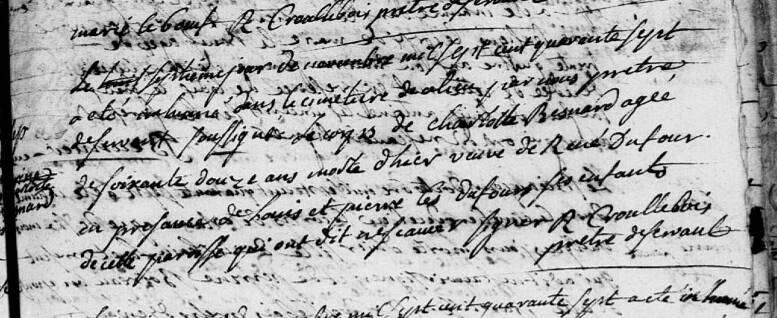 marie le bauf R Croullebois prêtre deservant
Le septième jour de novembre mil sept cent quarante sept
a eté inhumé dans le cimetiere de ce lieu par nous prêtre
deservant soussigné le corps de charlotte Besnard agée
de soixante douze ans morte d'hier veuve de René Dufour
en presance de Louis et pierre les dufours ses enfants
de cette paroisse qui ont dit ne scavoir signer R Croullebois
prêtre deservant
mil sept cent quarante sept a eté inhumé